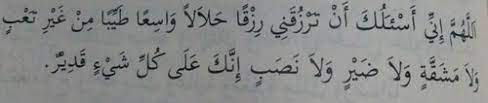 اَللّٰهُمَّ إِنِّي أَسْئَلُكَ أَنْ تَرْزُقَنِي رِزْقًا حَلَالًا وَاسِعًا طَيِّبًا مِنْ غَيْرِ تَعْبٍ
وَلَا مَشَقَّةٍ وَلَا ضَيْرٍ وَلَا نَصَبٍ إِنَّكَ عَلَى كُلِّ شَيْءٍ قَدِيْرٌ.